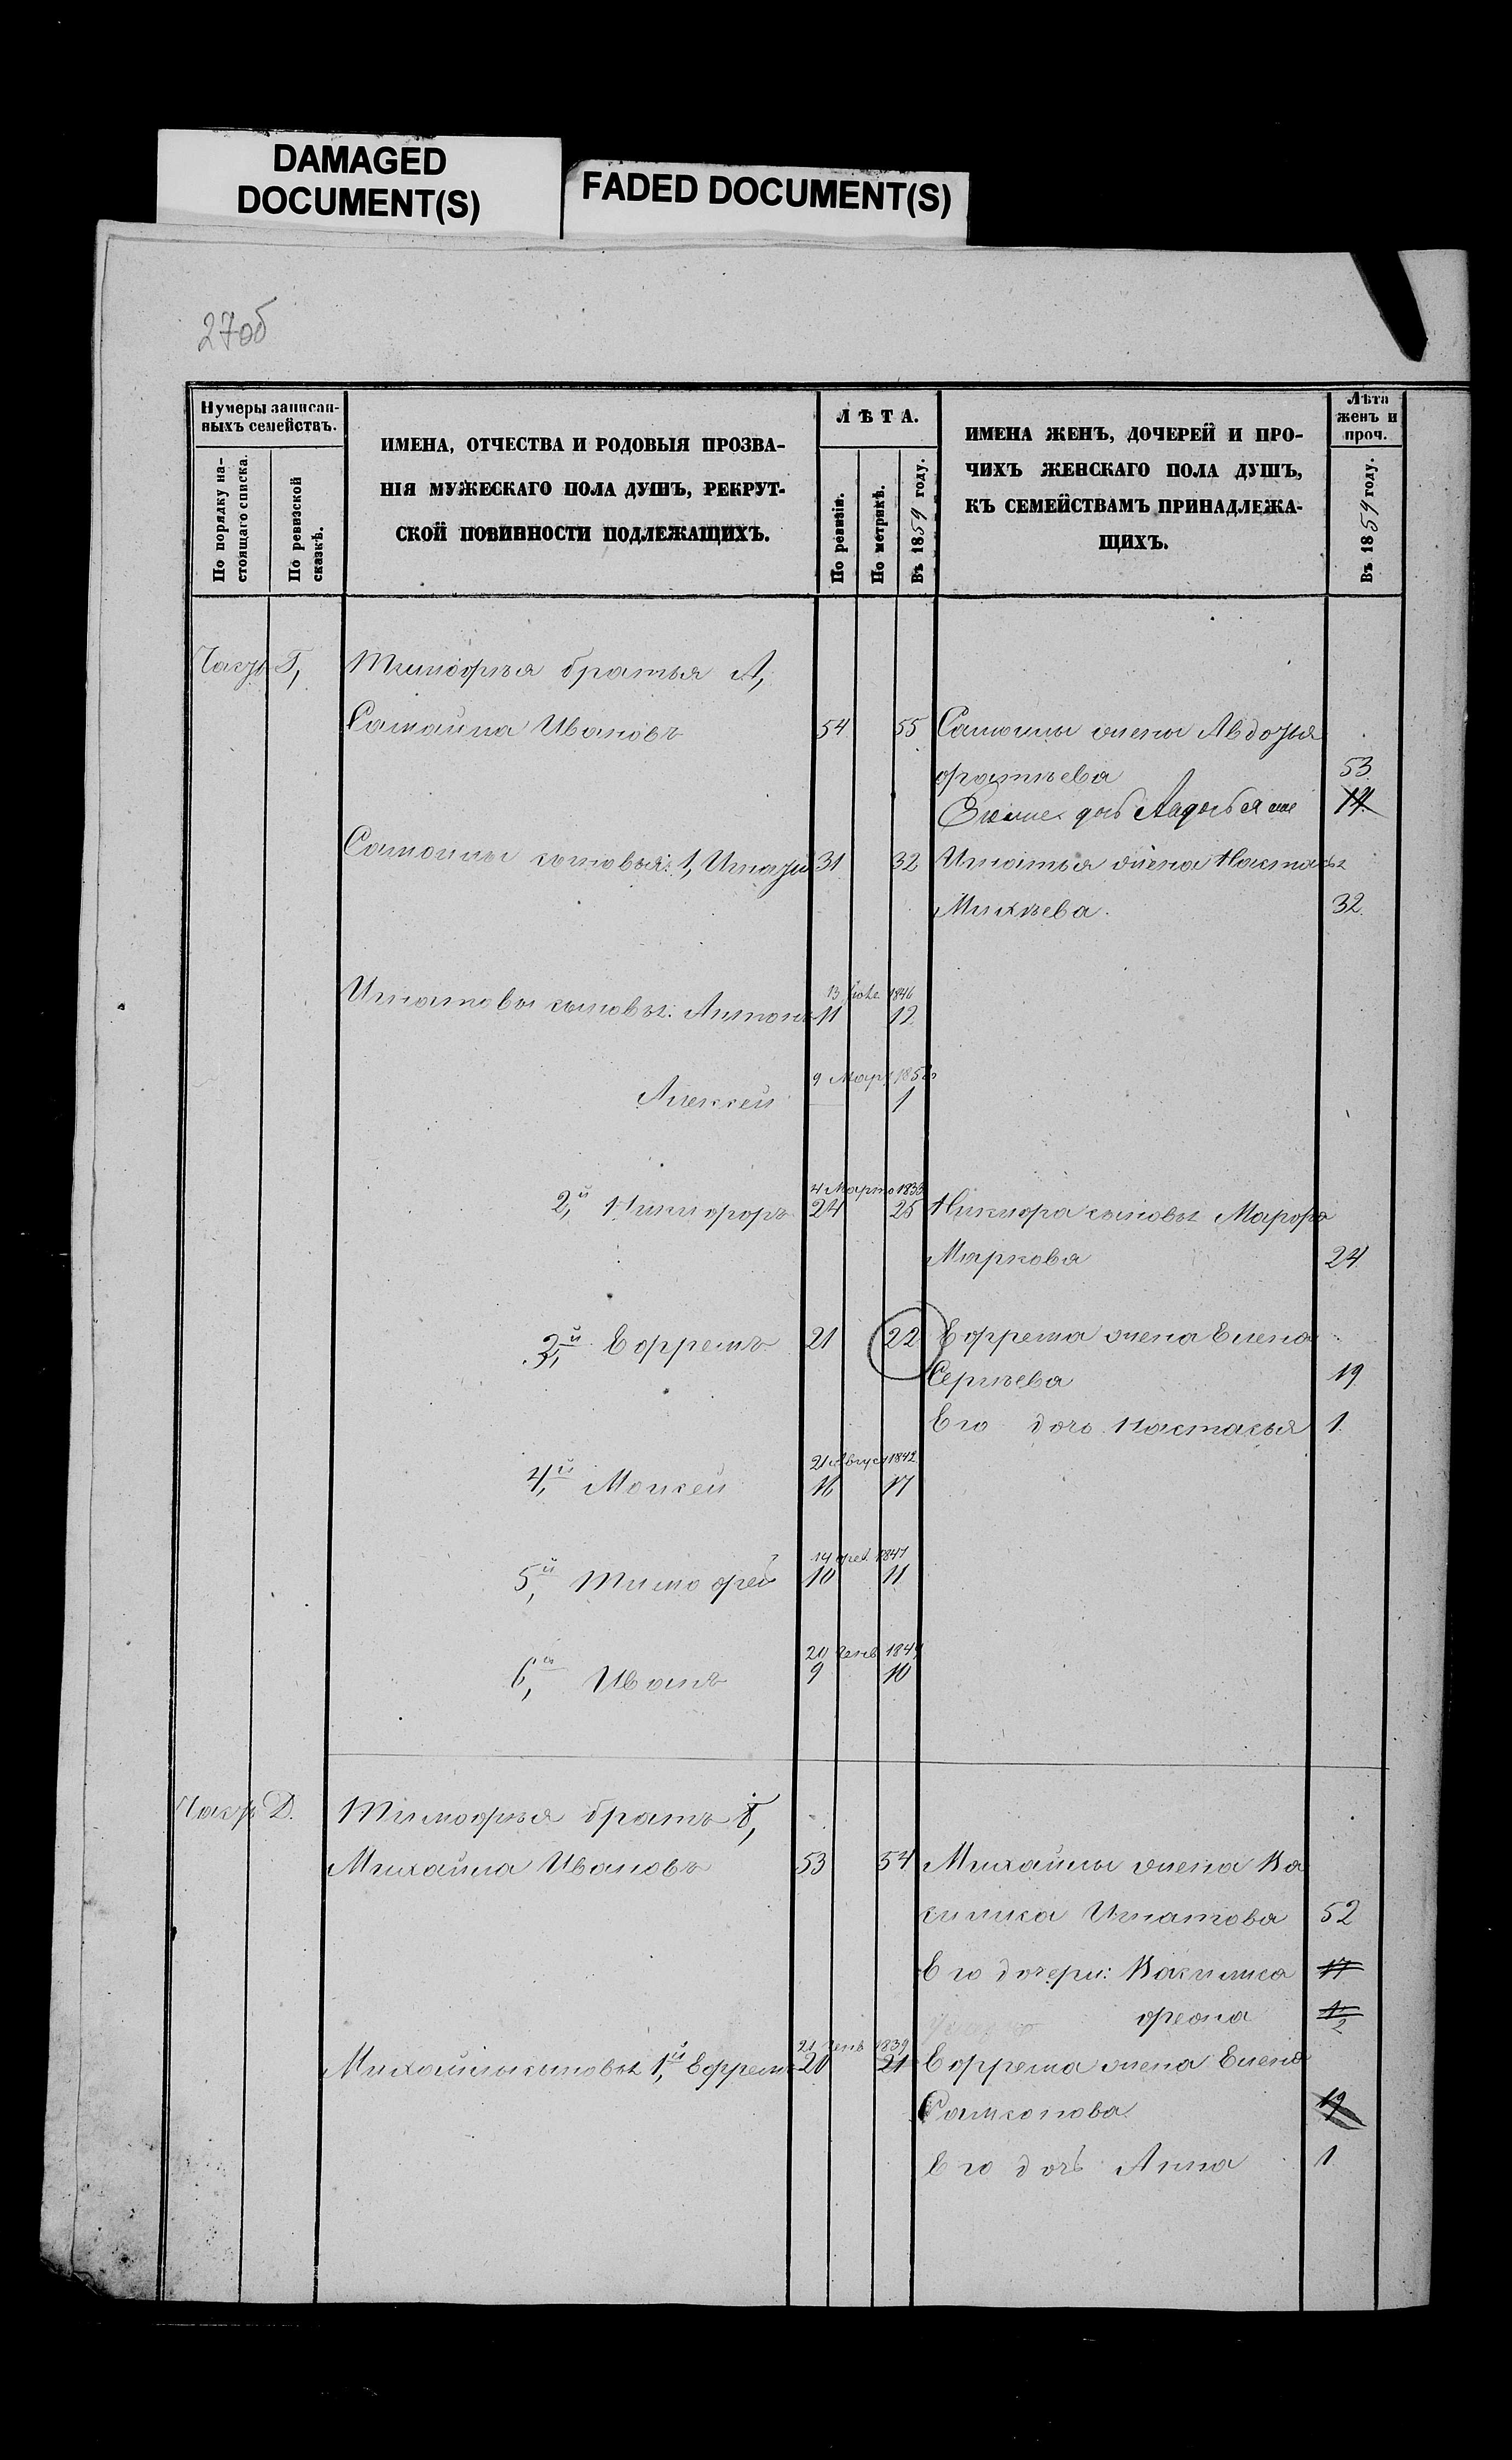 DAMAGED
DOCUMENT(S)
FADED DOCUMENT(S)
27об
Нумеры записан-
ныхъ семействъ.
По порядку на-
стоящаго списка.
По ревизской
сказкѣ.
ИМЕНА, ОТЧЕСТВА И РОДОВЫЯ ПРОЗВА-
НІЯ МУЖЕСКАГО ПОЛА ДУШЪ, РЕКРУТ-
СКОЙ ПОВИННОСТИ ПОДЛЕЖАЩИХЪ.
ЛѢТА.
По ревизіи.
По метрикѣ.
Въ 1859 году.
ИМЕНА ЖЕНЪ, ДОЧЕРЕЙ И ПРО-
ЧИХЪ ЖЕНСКАГО ПОЛА ДУШЪ,
КЪ СЕМЕЙСТВАМЪ ПРИНАДЛЕЖА-
ЩИХЪ.
Лѣта
женъ и
проч.
Въ 1859 году.
Тимофѣя братья А,
Самойла Ивановъ 54 55 Самойлы жена Авдотья
53
14
Самойлы сыновья: 1, Игнатій 31 32 Игнатья жена Настасья
Михѣева. 32
Игнатовы сыновья: Антонъ 11 12
1846
Алексей 1
9 Март
2,й Никифоръ 24 25
4 Марта 1833
Маркова 24
3,й Ефремъ 21 22 Ефрема жена Елена
Сергѣева 19
Его дочь Настасья 1
21 Август 1842
4,й Мойсей 16 17
14 1847
5,й Тимофей 10 11
20 1849
6,й Иванъ 9 10
Д. Тимофѣя братъ б,
Михайла Ивановъ 53 54 Михайлы жена Ва
силиса Игнатова 52
Его дочери: Василиса 17
12
21 1839
Михайлы сыновья 1,й Ефремъ 20 21 Ефрема жена Елена
Самсонова 19
Его дочь Анна 1